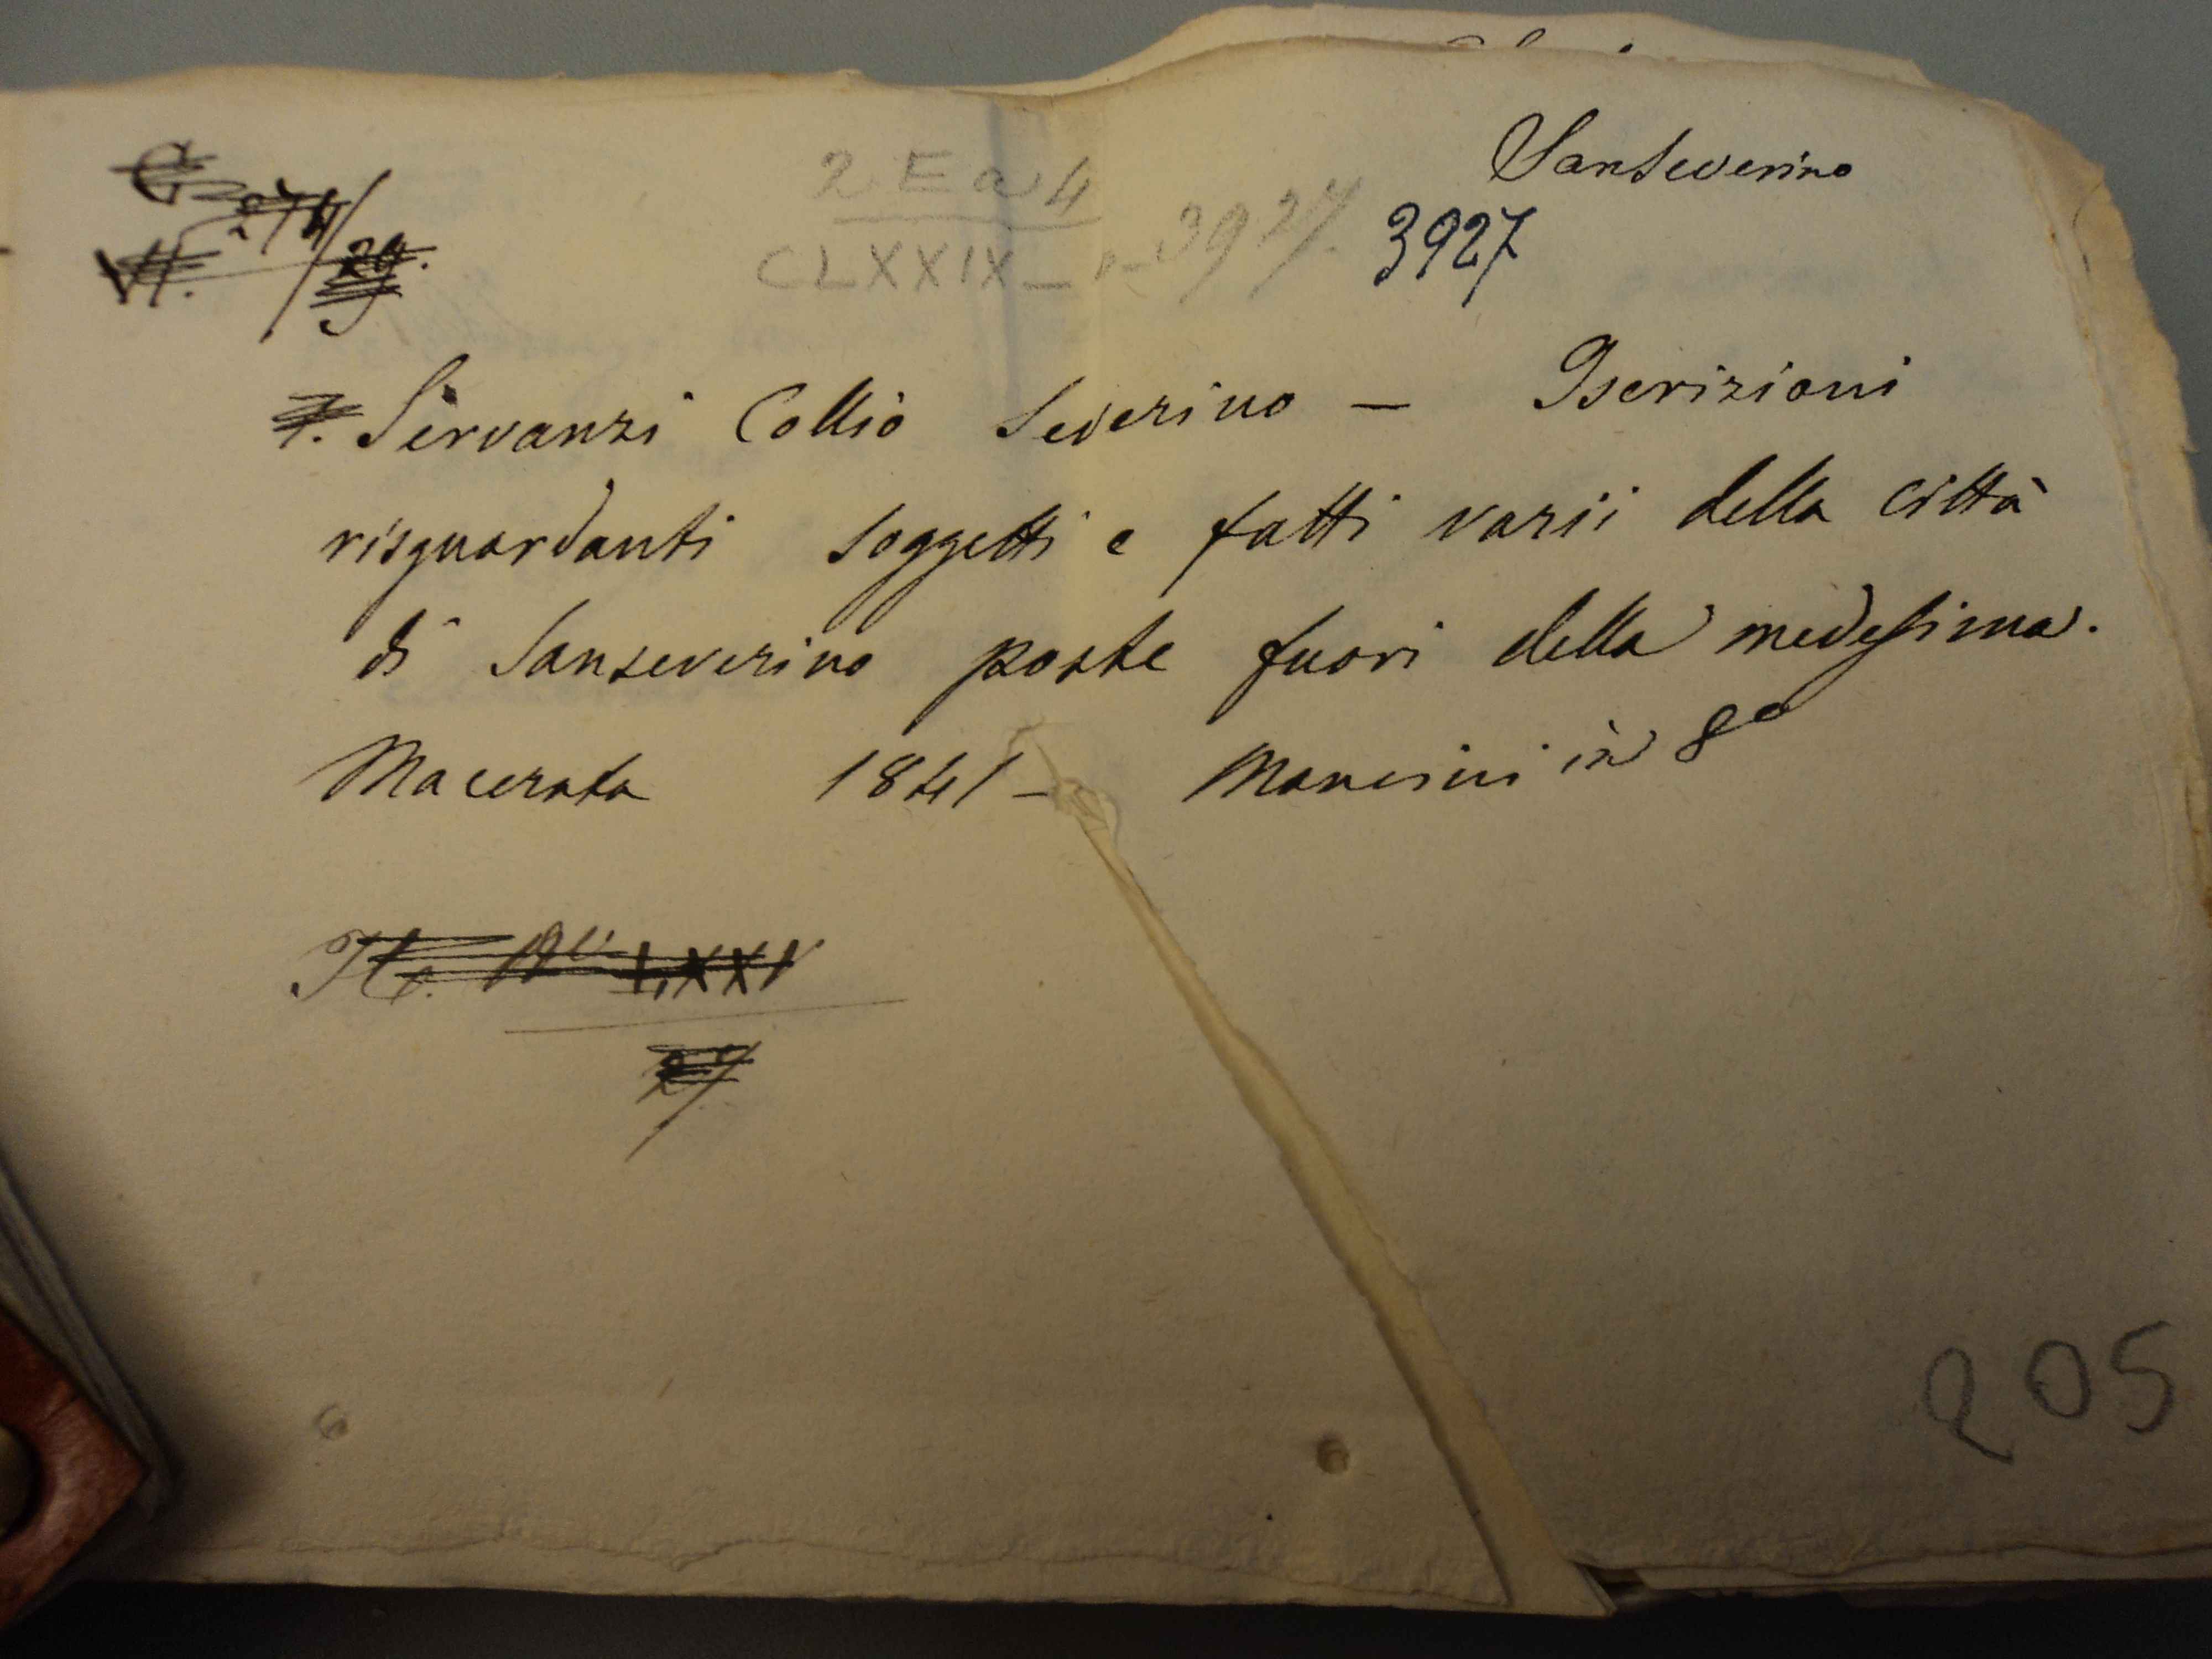 Sanseverino
2 E a 4
CLXXIX - n - 3927.
3927
G 274/29.
VI.
7. Servanzi Collio Severino — Iscrizioni
risguardanti soggetti e fatti varii della città
di Sanseverino poste fuori della medesima.
Macerata 1841 - Mancini in 8º
LXXV
27
205